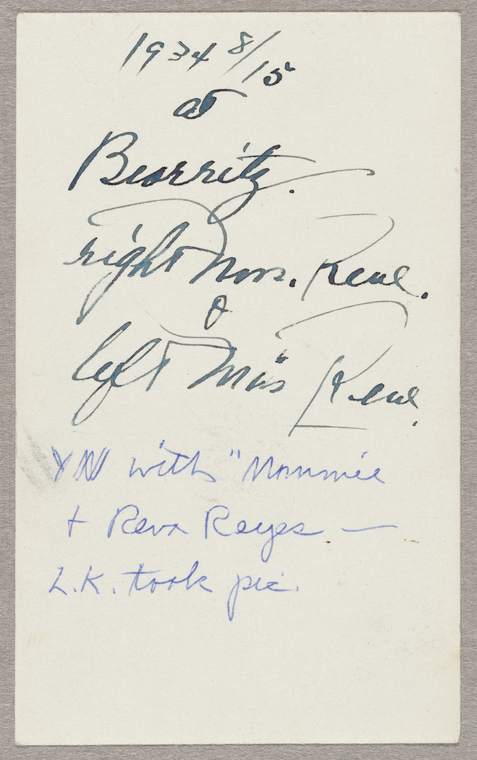 1934 8/15
at
Biarritz.
right Mrs. Rene.
&
left Miss Rene.
YN with "Mammie
+ Reva Reyes —
L.K. took pic.